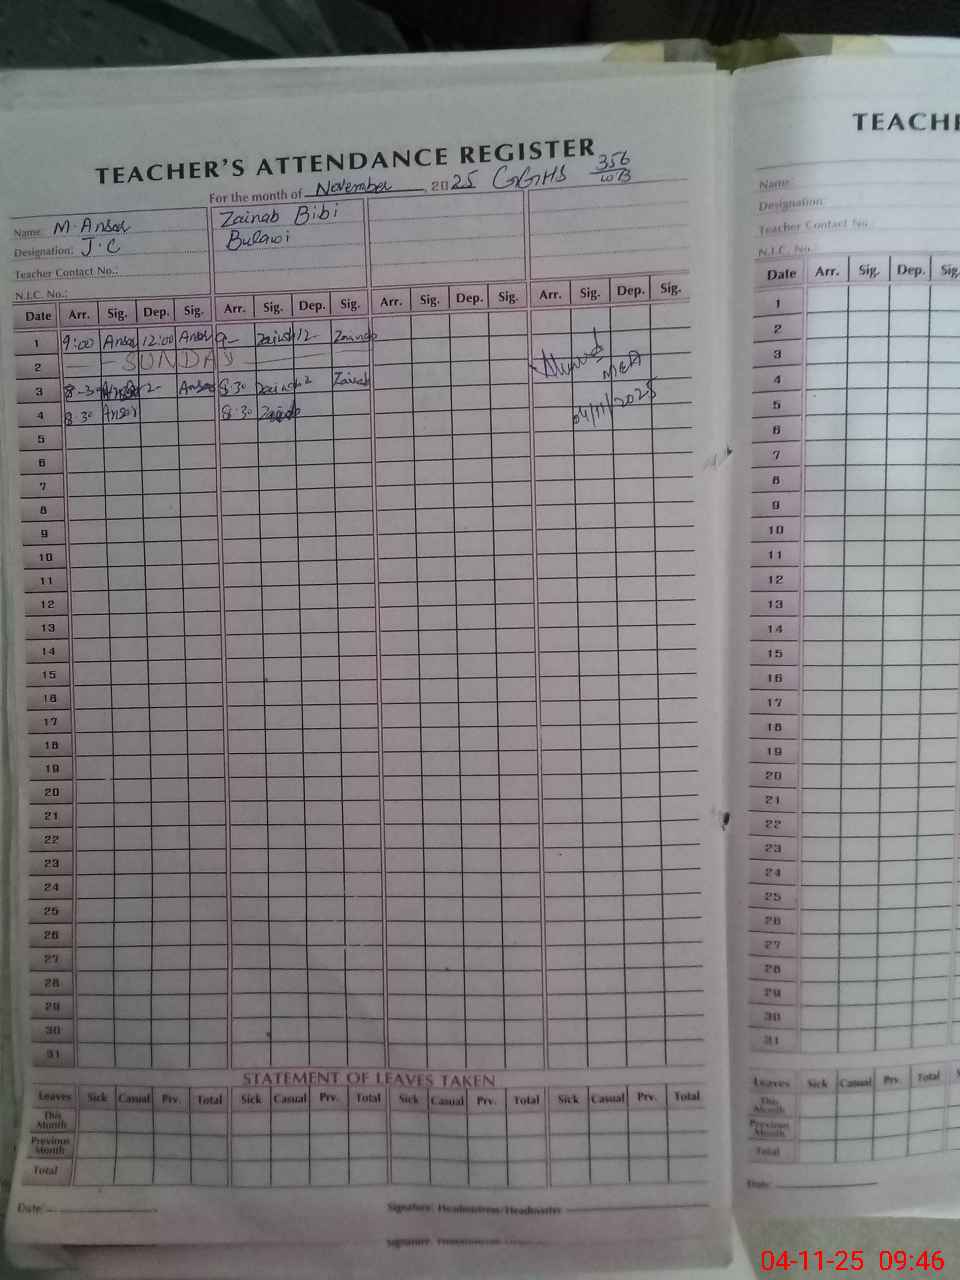 TEACHER'S ATTENDANCE REGISTER
For the month of November, 2025 GGHS 356/WB
Name: M. Ansar
Designation: J.C
Teacher Contact No.:
N.I.C. No.:
Zainab Bibi
Bulawi
Date Arr. Sig. Dep. Sig. Arr. Sig. Dep. Sig. Arr. Sig. Dep. Sig. Arr. Sig. Dep. Sig.
1 9:00 Ansar 12:00 Ansar 9 Zainab 12 Zainab
2 SUNDAY
3 8-30 Ansar 2 Ansar 8:30 Zainab 2 Zainab
4 8:30 Ansar 8:30 Zainab
MEA
04/11/2025
5
6
7
8
9
10
11
12
13
14
15
16
17
18
19
20
21
22
23
24
25
26
27
28
29
30
31
STATEMENT OF LEAVES TAKEN
Leaves Sick Casual Prv. Total Sick Casual Prv. Total Sick Casual Prv. Total Sick Casual Prv. Total
This Month
Previous Month
Total
Date:
Signature: Headmistress/Headmaster
TEACH
Name:
Designation:
Teacher Contact No.:
N.I.C. No.:
Date Arr. Sig. Dep. Sig.
1
2
3
4
5
6
7
8
9
10
11
12
13
14
15
16
17
18
19
20
21
22
23
24
25
26
27
28
29
30
31
Leaves Sick Casual Prv. Total
This Month
Previous Month
Total
Date:
04-11-25 09:46